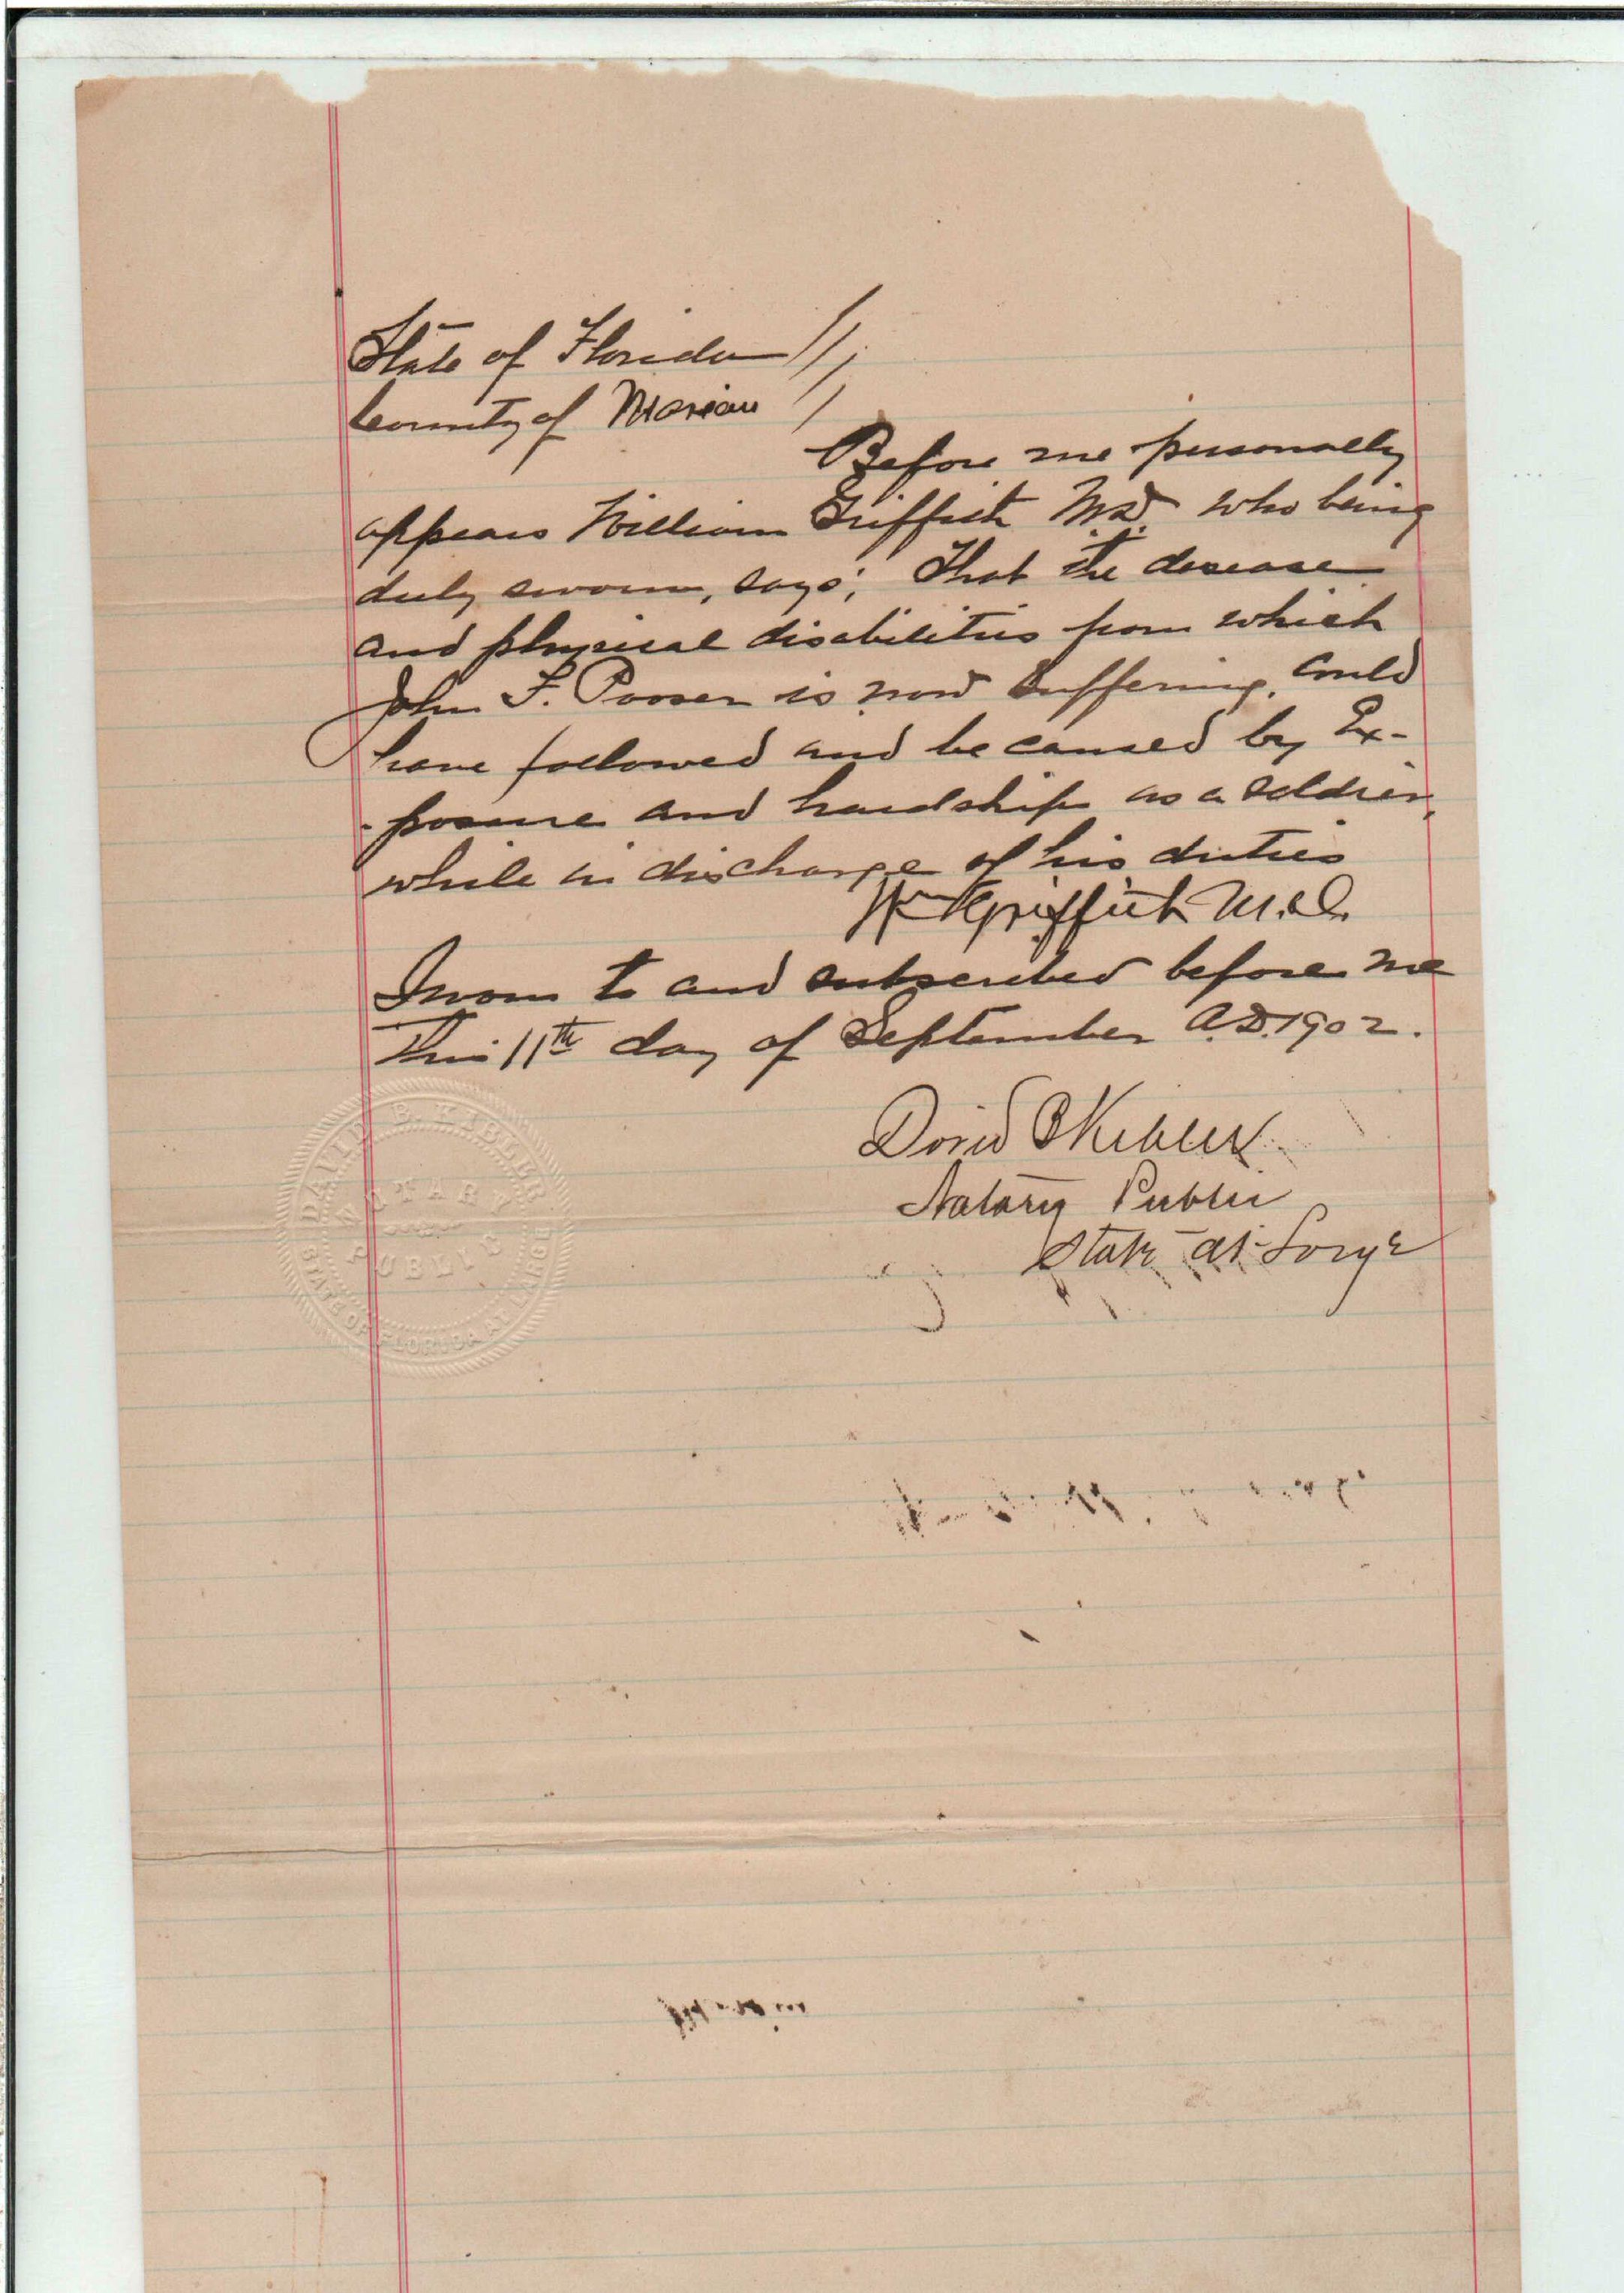 State of Florida
County of Marion
Before me personally
appears William Griffith M.D. who being
duly sworn, says; That the desease
and physical disabilities from which
John F. Pooser is now suffering, could
have followed and be caused by Ex-
posure and hardship as a soldier,
while in discharge of his duties
Wm Griffith M.D.
Sworn to and subscribed before me
this 11th day of September A.D. 1902.
David B Kibler
Notary Public
State at Large
DAVID B. KIBLER
NOTARY
PUBLIC
STATE OF FLORIDA AT LARGE